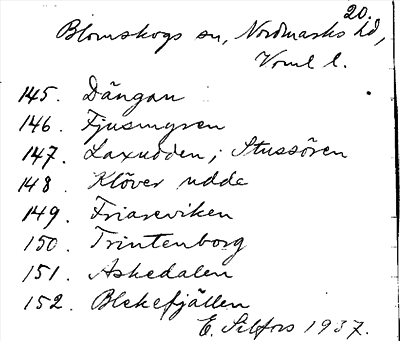 20.
Blomskogs sn, Nordmarks hd,
Verml l.
145. Dängan
146. Fjusmyren
147. Laxudden; Stussören
148. Klöver udde
149. Friareviken
150. Trintenborg
151. Askedalen
152. Blekefjällen
E. Silfors 1937.